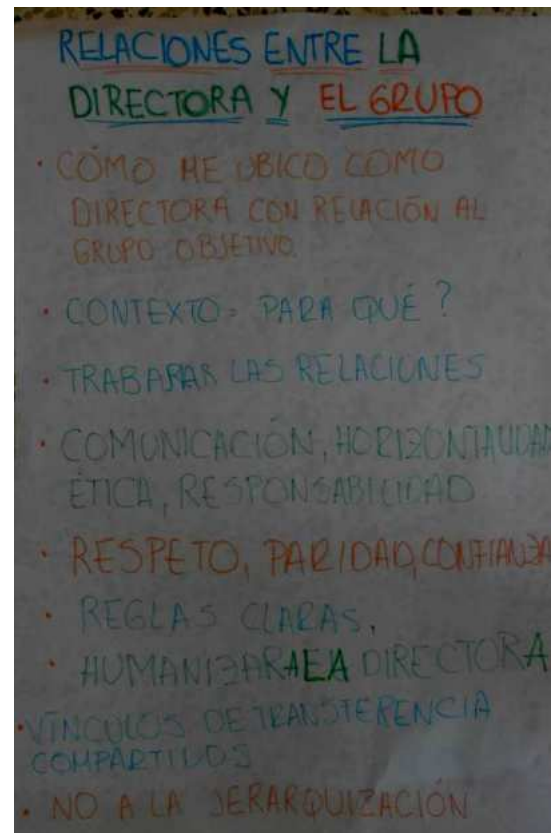 RELACIONES ENTRE LA
DIRECTORA Y EL GRUPO
· CÓMO ME UBICO COMO
DIRECTORA CON RELACIÓN AL
GRUPO OBJETIVO.
· CONTEXTO = PARA QUÉ?
· TRABAJAR LAS RELACIONES
· COMUNICACIÓN, HORIZONTALIDAD
ÉTICA, RESPONSABILIDAD
· RESPETO, PARIDAD, CONFIANZA
· REGLAS CLARAS.
· HUMANIZAR A LA DIRECTORA
· VÍNCULOS DE TRANSFERENCIA
COMPARTIDOS
· NO A LA JERARQUIZACIÓN